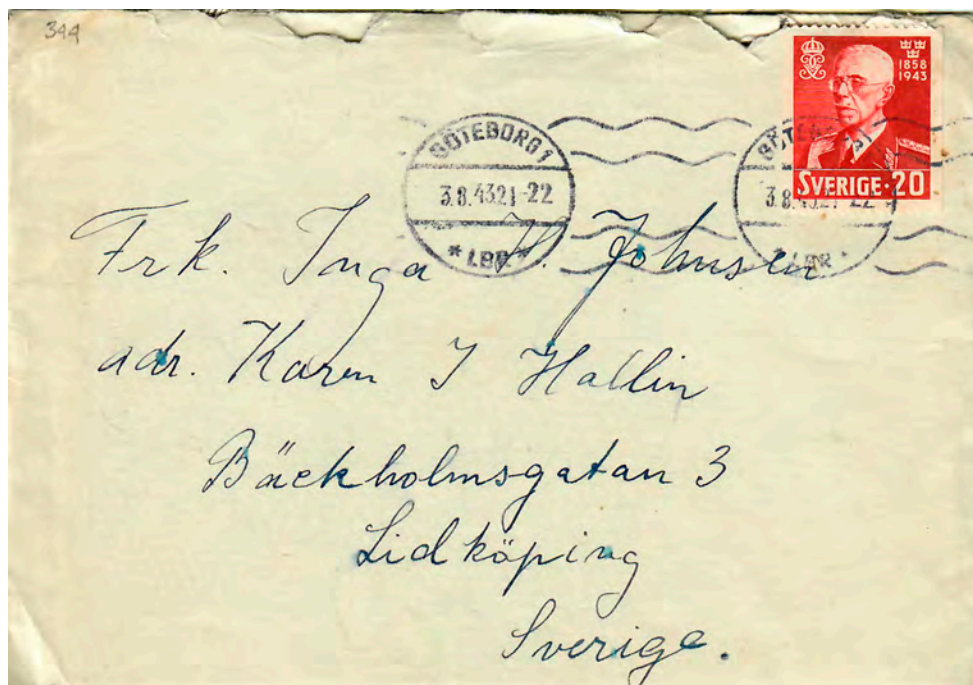 344
1858
1943
SVERIGE·20
GÖTEBORG 1
3.8.43.21-22
* LBR *
GÖTEBORG 1
3.8.43.21-22
* LBR *
Frk. Inga H. Johnsen
adr. Karen J Hallin
Bäckholmsgatan 3
Lidköping
Sverige.